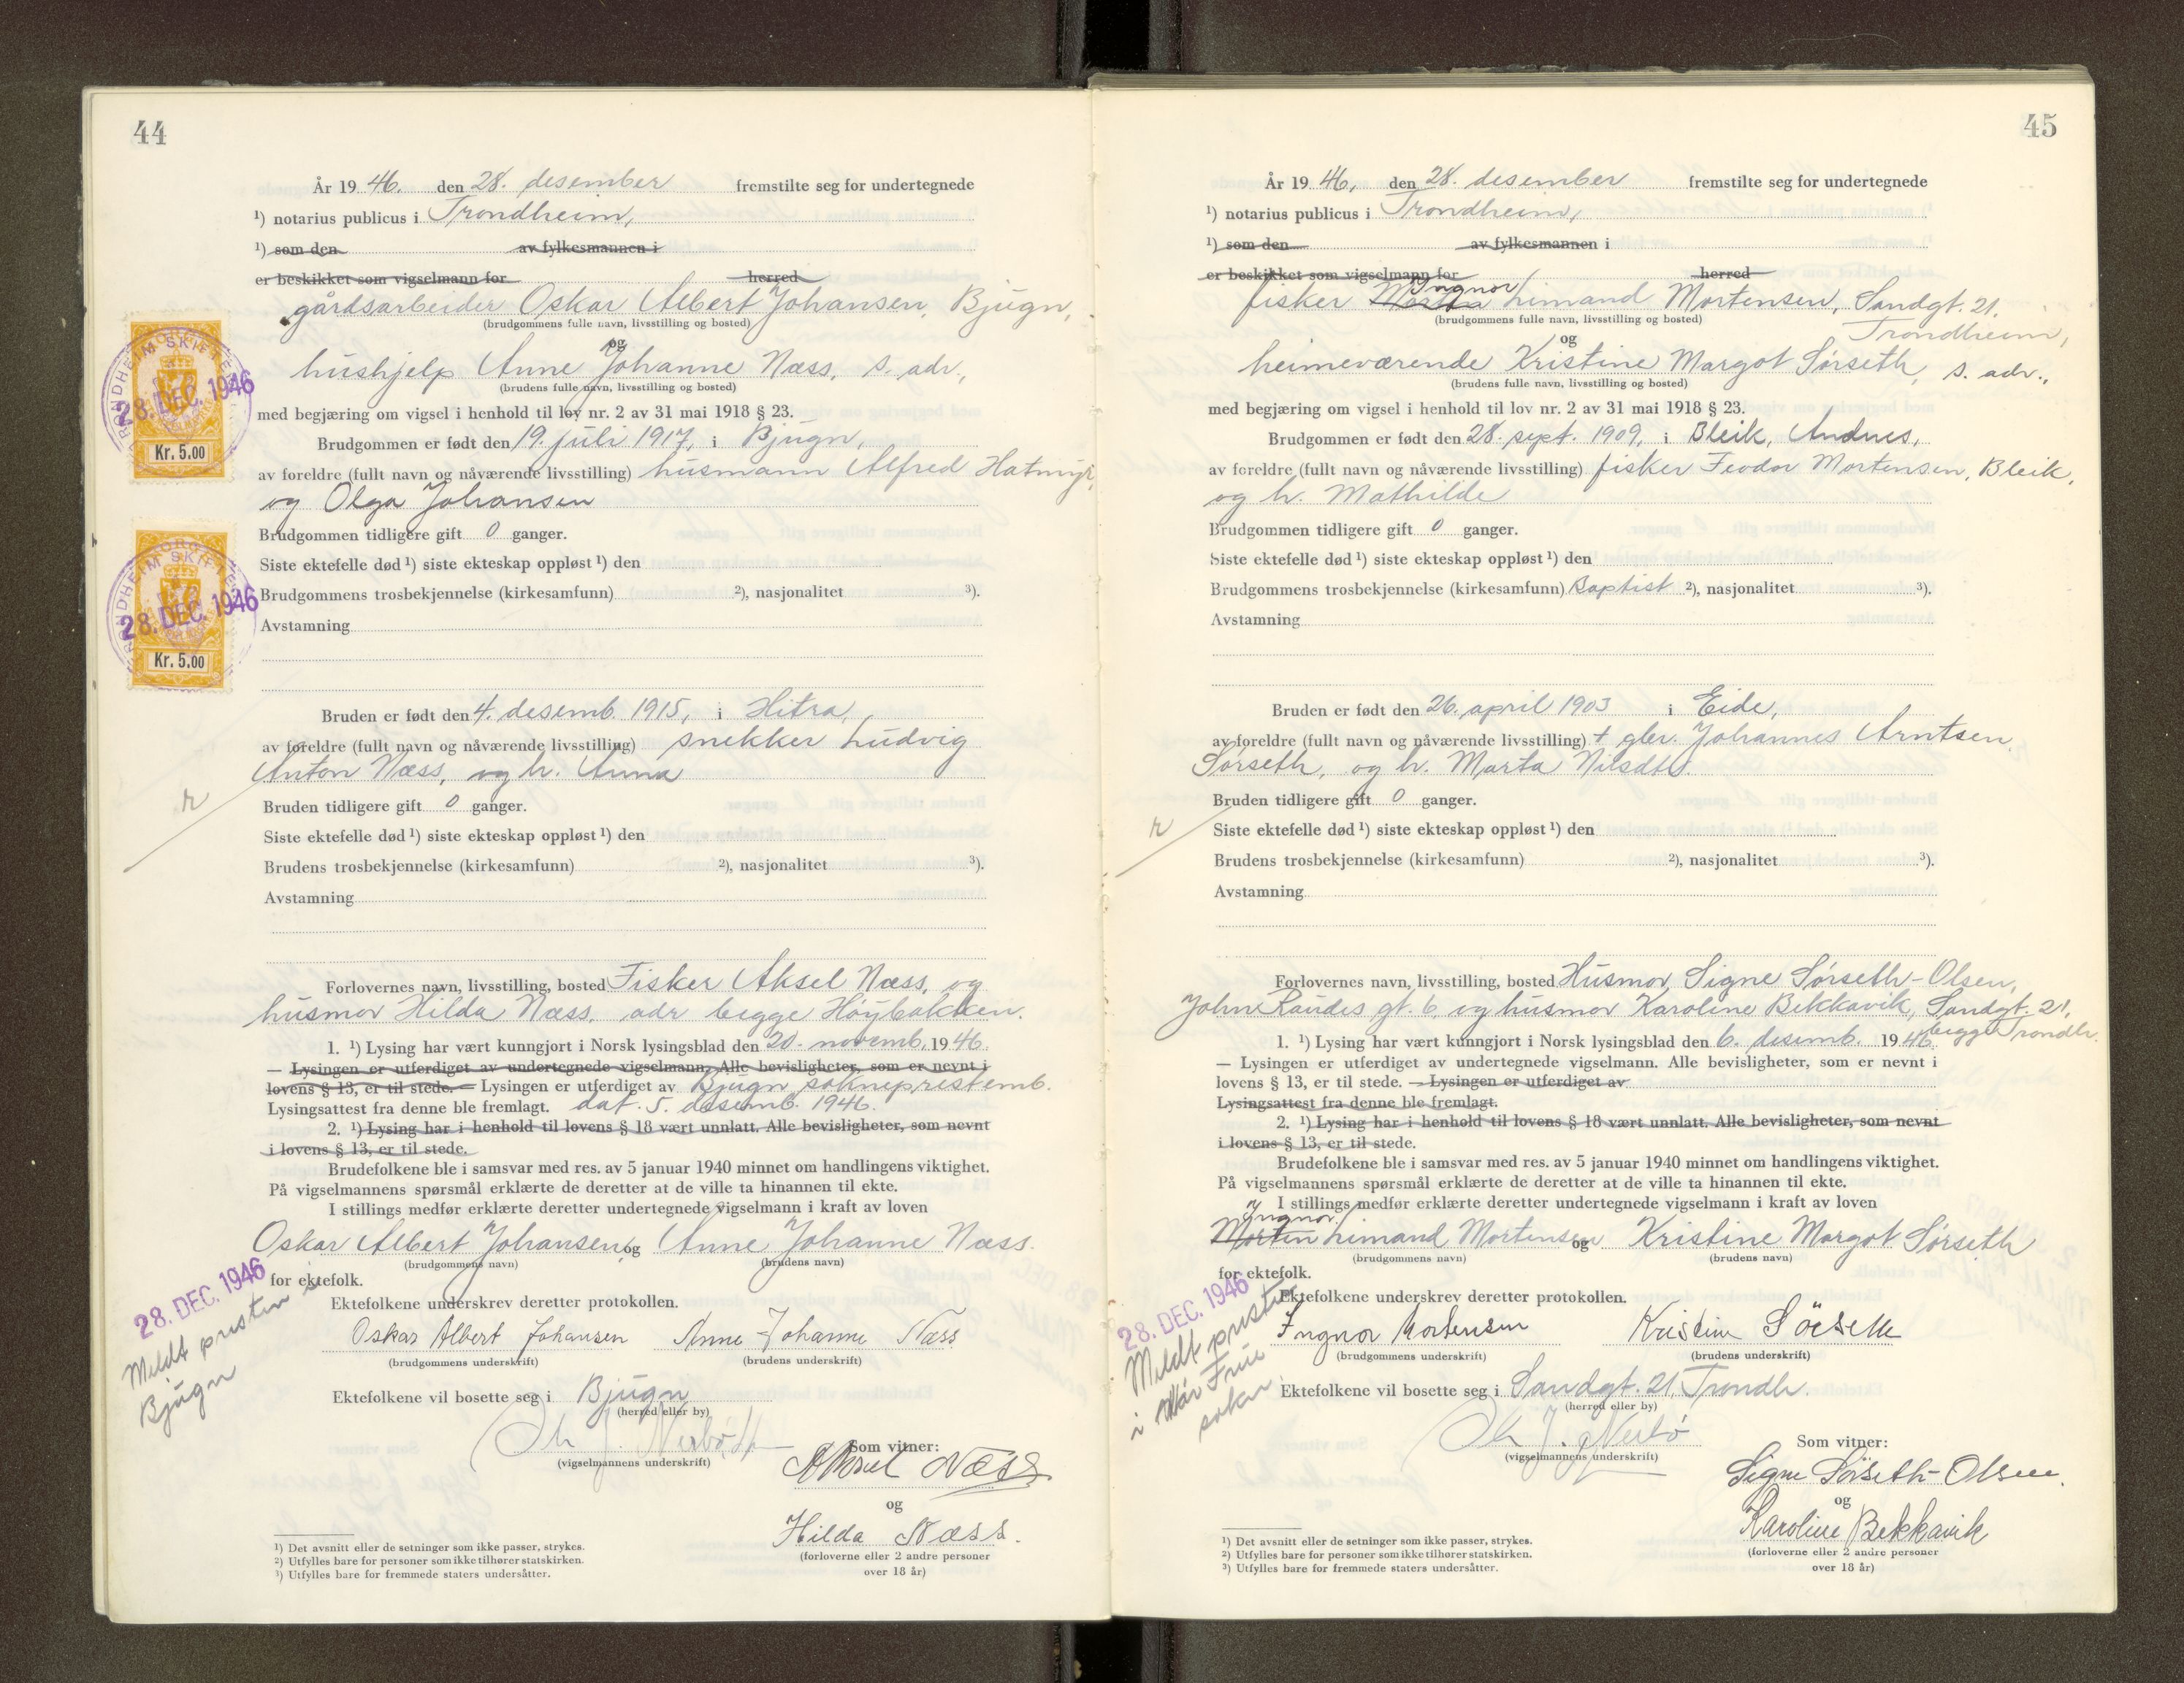 44
År 19 46. den 28. desember fremstilte seg for undertegnede
¹) notarius publicus i Trondheim,
¹) som den av fylkesmannen i
er beskikket som vigselmann for herred
gårdsarbeider Oskar Albert Johansen, Bjugn,
(brudgommens fulle navn, livsstilling og bosted)
og
hushjelp Anne Johanne Næss, s. adr.,
(brudens fulle navn, livsstilling og bosted)
med begjæring om vigsel i henhold til lov nr. 2 av 31 mai 1918 § 23.
Brudgommen er født den 19. juli 1917, i Bjugn,
av foreldre (fullt navn og nåværende livsstilling) husmann Alfred Hatmyr,
og Olga Johansen
Brudgommen tidligere gift 0 ganger.
Siste ektefelle død ¹) siste ekteskap oppløst ¹) den
Brudgommens trosbekjennelse (kirkesamfunn) ²), nasjonalitet ³).
Avstamning
Bruden er født den 4. desemb. 1915, i Hitra,
av foreldre (fullt navn og nåværende livsstilling) snekker Ludvig
Anton Næss, og h. Anna
r
Bruden tidligere gift 0 ganger.
Siste ektefelle død ¹) siste ekteskap oppløst ¹) den
Brudens trosbekjennelse (kirkesamfunn) ²), nasjonalitet ³).
Avstamning
Forlovernes navn, livsstilling, bosted Fisker Aksel Næss, og
husmor Hilda Næss, adr begge Høybakken.
1. ¹) Lysing har vært kunngjort i Norsk lysingsblad den 20. novemb. 19 46.
— Lysingen er utferdiget av undertegnede vigselmann. Alle bevisligheter, som er nevnt i
lovens § 13, er til stede. — Lysingen er utferdiget av Bjugn sokneprestemb.
Lysingsattest fra denne ble fremlagt. dat. 5. desemb. 1946.
2. ¹) Lysing har i henhold til lovens § 18 vært unnlatt. Alle bevisligheter, som nevnt
i lovens § 13, er til stede.
Brudefolkene ble i samsvar med res. av 5 januar 1940 minnet om handlingens viktighet.
På vigselmannens spørsmål erklærte de deretter at de ville ta hinannen til ekte.
I stillings medfør erklærte deretter undertegnede vigselmann i kraft av loven
Oskar Albert Johansen og Anne Johanne Næss.
(brudgommens navn) (brudens navn)
for ektefolk.
28. DEC. 1946
Meldt presten i
Bjugn
Ektefolkene underskrev deretter protokollen.
Oskar Albert Johansen Anne Johanne Næss
(brudgommens underskrift) (brudens underskrift)
Ektefolkene vil bosette seg i Bjugn
(herred eller by)
(vigselmannens underskrift)
Som vitner:
Aksel Næss
og
Hilda Næss.
(forloverne eller 2 andre personer
over 18 år)
¹) Det avsnitt eller de setninger som ikke passer, strykes.
²) Utfylles bare for personer som ikke tilhører statskirken.
³) Utfylles bare for fremmede staters undersåtter.
28. DEC. 1946
Kr. 5.00
28. DEC. 1946
Kr. 5.00
45
År 19 46, den 28. desember fremstilte seg for undertegnede
¹) notarius publicus i Trondheim,
¹) som den av fylkesmannen i
er beskikket som vigselmann for herred
Ingnor
fisker Limand Mortensen, Sandgt. 21,
(brudgommens fulle navn, livsstilling og bosted)
Trondheim,
og
heimeværende Kristine Margot Sørseth, s. adr.,
(brudens fulle navn, livsstilling og bosted)
med begjæring om vigsel i henhold til lov nr. 2 av 31 mai 1918 § 23.
Brudgommen er født den 28. sept. 1909, i Bleik, Andnes,
av foreldre (fullt navn og nåværende livsstilling) fisker Feodor Mortensen, Bleik,
og h. Mathilde
Brudgommen tidligere gift 0 ganger.
Siste ektefelle død ¹) siste ekteskap oppløst ¹) den
Brudgommens trosbekjennelse (kirkesamfunn) Baptist ²), nasjonalitet ³).
Avstamning
Bruden er født den 26. april 1903 i Eide,
av foreldre (fullt navn og nåværende livsstilling) + gbr. Johannes Arntsen
Sørseth, og h. Marta Nilsdtr.
Bruden tidligere gift 0 ganger.
r
Siste ektefelle død ¹) siste ekteskap oppløst ¹) den
Brudens trosbekjennelse (kirkesamfunn) ²), nasjonalitet ³).
Avstamning
Forlovernes navn, livsstilling, bosted Husmor Signe Sørseth-Olsen,
John gt. 6, og husmor Karoline Bekkavik, Sandgt. 21,
begge Trondh.
1. ¹) Lysing har vært kunngjort i Norsk lysingsblad den 6. desemb. 19 46.
— Lysingen er utferdiget av undertegnede vigselmann. Alle bevisligheter, som er nevnt i
lovens § 13, er til stede. — Lysingen er utferdiget av
Lysingsattest fra denne ble fremlagt.
2. ¹) Lysing har i henhold til lovens § 18 vært unnlatt. Alle bevisligheter, som nevnt
i lovens § 13, er til stede.
Brudefolkene ble i samsvar med res. av 5 januar 1940 minnet om handlingens viktighet.
På vigselmannens spørsmål erklærte de deretter at de ville ta hinannen til ekte.
I stillings medfør erklærte deretter undertegnede vigselmann i kraft av loven
Ingnor
Morten Limand Mortensen og Kristine Margot Sørseth
(brudgommens navn) (brudens navn)
for ektefolk.
28. DEC. 1946
Meldt presten
i Vår Frue
sokn.
Ektefolkene underskrev deretter protokollen.
Ingnor Mortensen Kristine Sörseth
(brudgommens underskrift) (brudens underskrift)
Ektefolkene vil bosette seg i Sandgt. 21, Trondh.
(herred eller by)
(vigselmannens underskrift)
Som vitner:
Signe Sørseth-Olsen.
og
Karoline Bekkavik
(forloverne eller 2 andre personer
over 18 år)
¹) Det avsnitt eller de setninger som ikke passer, strykes.
²) Utfylles bare for personer som ikke tilhører statskirken.
³) Utfylles bare for fremmede staters undersåtter.